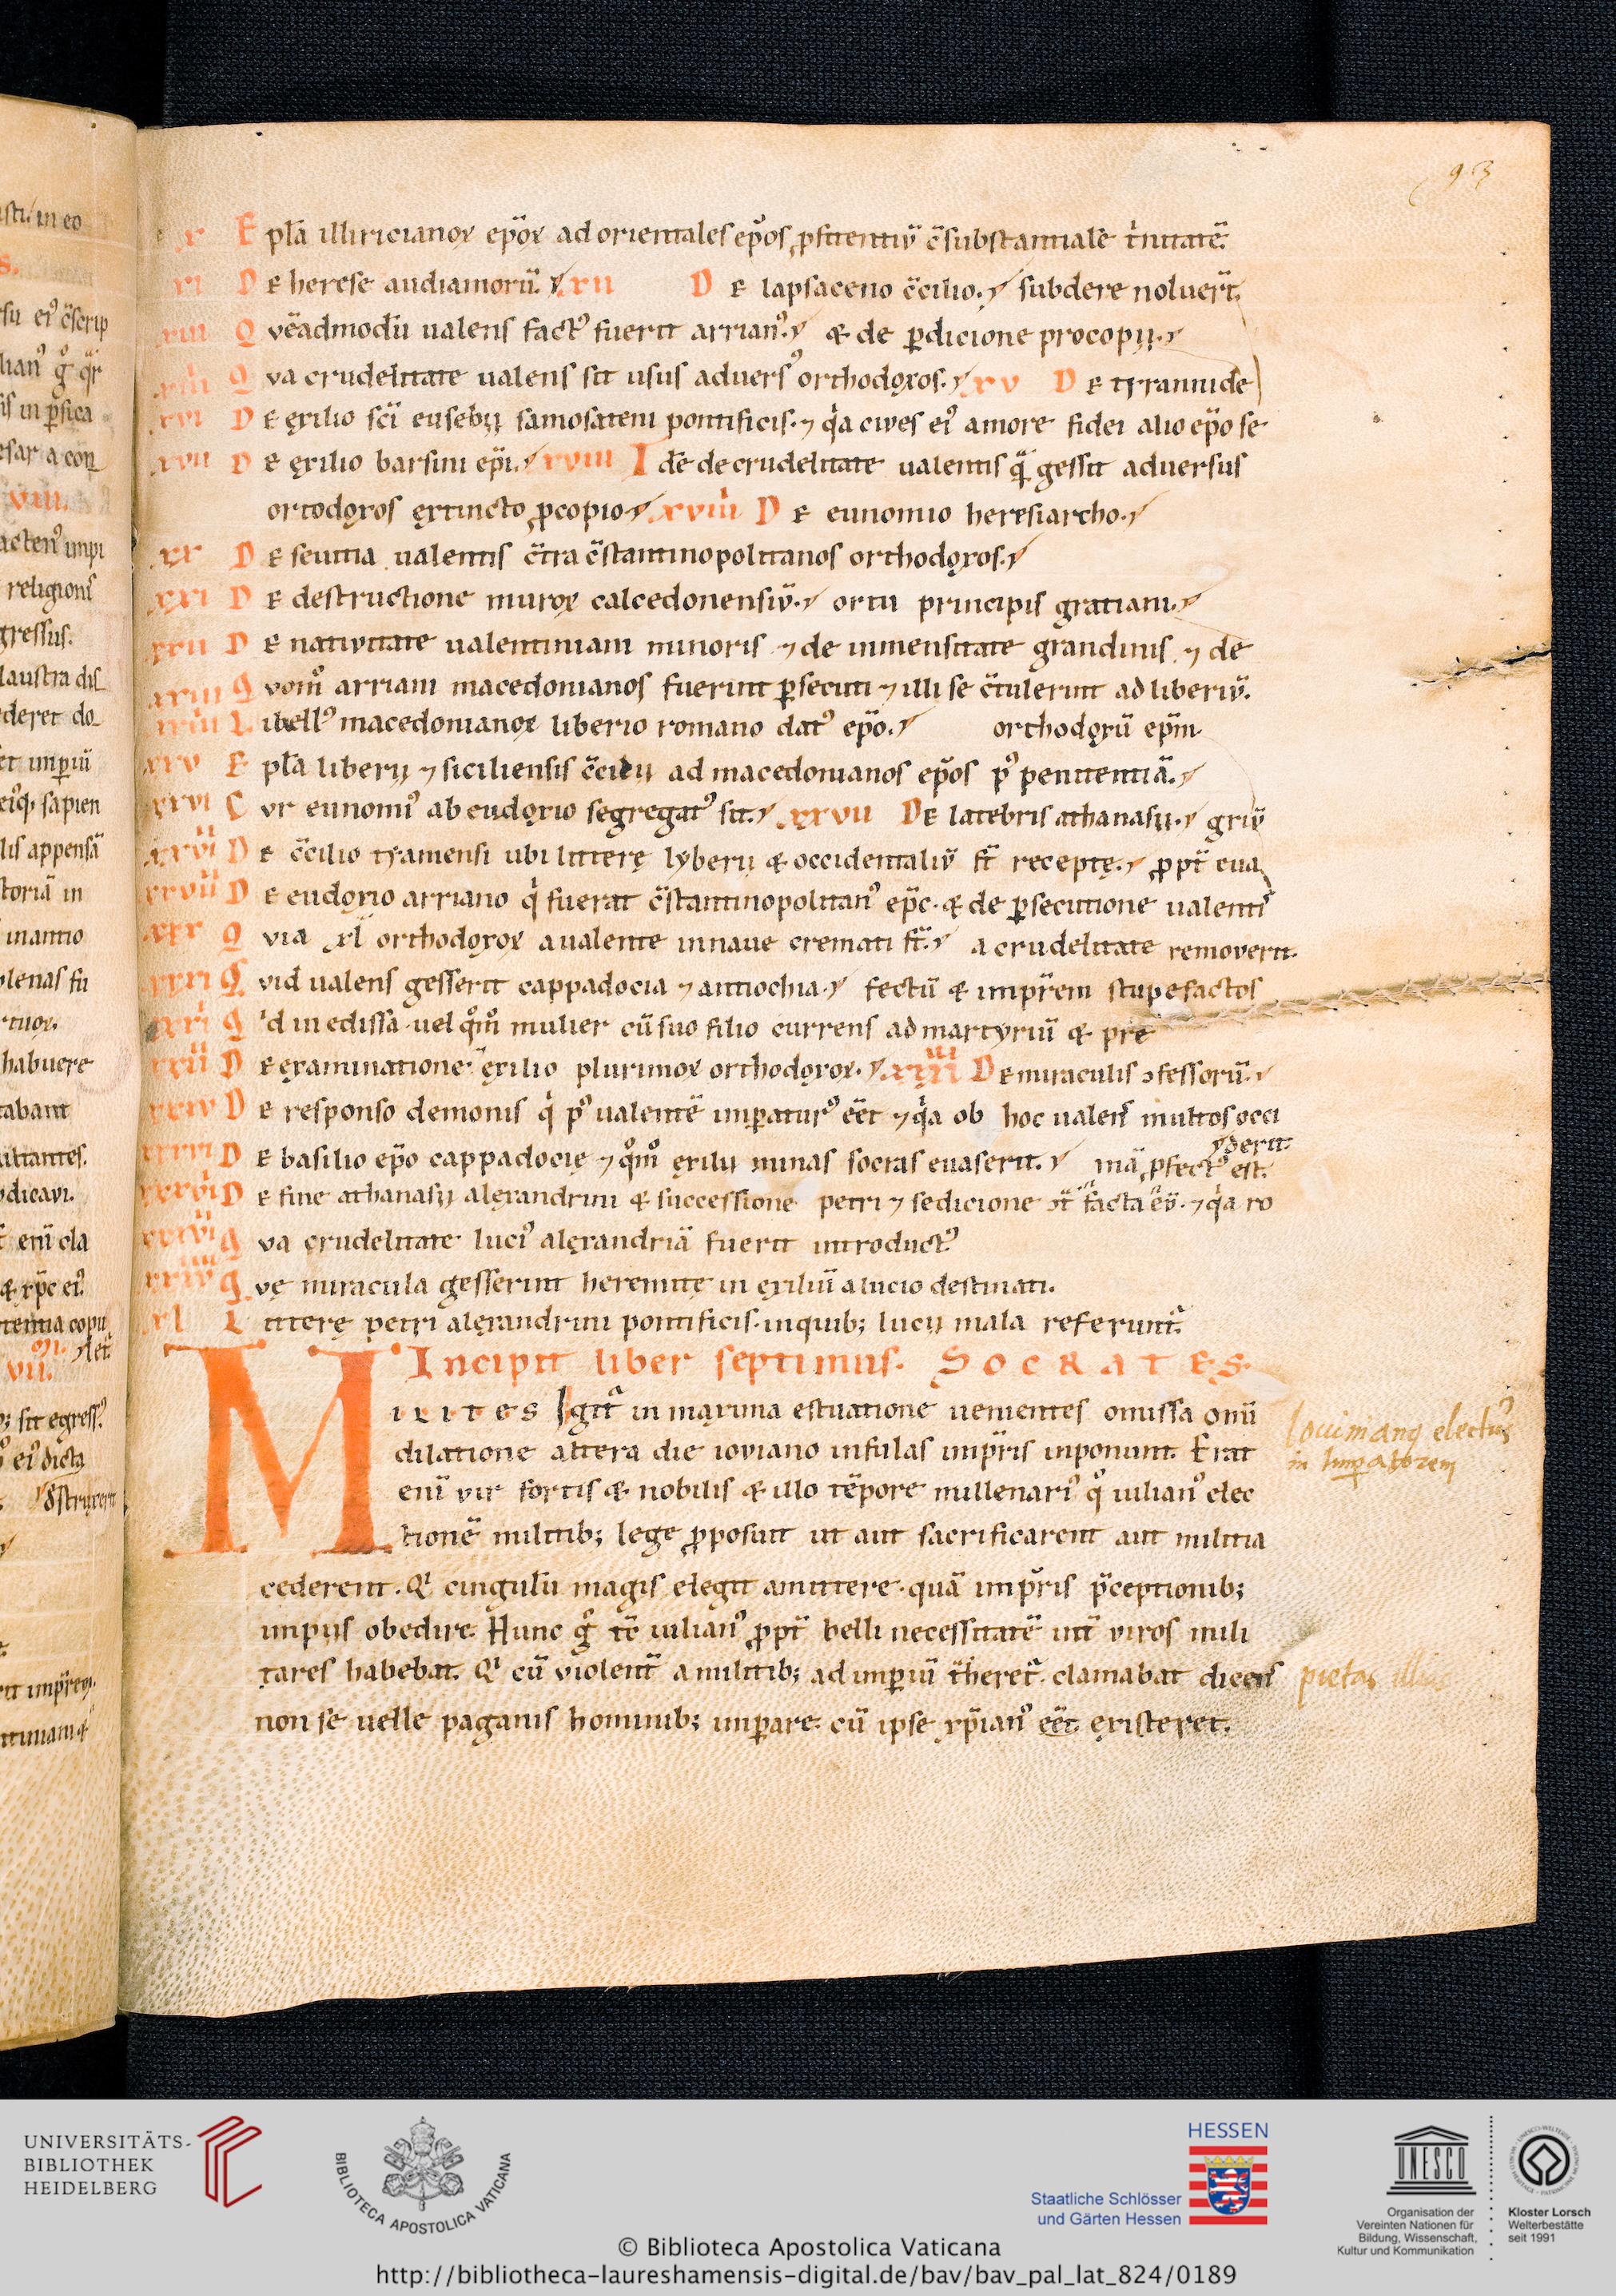 93
x E pl̄a illiricianoꝝ ep̄oꝝ ad orientales ep̄os ꝓfitentiū c̄substantialē t'nitatē.
xi D e herese audianorū. xii D e lapsaceno c̄cilio. subdere noluer̄t.
xiii Q uēadmodū ualens fact᷒ fuerit arrian᷒. & de ꝑdicione procopij.
xiiii Q va crudelitate ualens sit usus aduers᷒ orthodoxos. xv D e tyrannide
xvi D e exilio sc̄i eusebij samosateni pontificis. ⁊ q'a cives ei᷒ amore fidei alio ep̄o se
xvii D e exilio barsini ep̄i. xviii I dē de crudelitate ualentis q̄ gessit aduersus
ortodoxos extincto ꝓcopio. xviiii D e eunomio heresiarcho.
xx D e seuitia ualentis c̄tra c̄stantinopolitanos orthodoxos.
xxi D e destructione muroꝝ calcedonensiū. ortu principis gratiani.
xxii D e nativitate ualentiniani minoris ⁊ de inmensitate grandinis ⁊ de
xxiii Q uom̊ arriani macedonianos fuerint ꝑsecuti ⁊ illi se c̄tulerint ad liberiū.
xxiiii L ibell᷒ macedonianoꝝ liberio romano dat᷒ ep̄o. orthodoxū ep̄m
xxv E pl̄a liberij ⁊ siciliensis c̄cilij ad macedonianos ep̄os p᷒ penitentiā.
xxvi C ur eunomi᷒ ab eudoxio segregat᷒ sit. xxvii De latebris athanasii. griū
D e c̄cilio tyanensi ubi litterę lyberij & occidentaliū st̄ receptę. ꝓpt̄ eua
D e eudoxio arriano q' fuerat c̄stantinopolitan᷒ ep̄c. & de ꝑsecutione ualenti᷒
xxx Q via xl orthodoxoꝝ a ualente in naue cremati st̄. a crudelitate removerit.
xxxi Q vid ualens gesserit cappadocia ⁊ antiochia. fectū & imp̄rem stupefactos
Q 'd in edissa uel q̊m̊ mulier cū suo filio currens ad martyriū & pre
D e examinatione exilio plurimoꝝ orthodoxoꝝ. D e miraculis ɔfessorū.
D e responso demonis q' p᷒ ualentē imꝑatur᷒ eēt ⁊ q'a ob hoc ualens multos occi
derit.
D e basilio ep̄o cappadocie ⁊ q̊m̊ exilij minas socras evaserit. mā ꝓfect᷒ est.
D e fine athanasij alexandrini & successione petri ⁊ sedicione facta ⁊ q'a ro
Q va crudelitate luci᷒ alexandriā fuerit introduct᷒
Q ve miracula gesserint heremitę in exiliū a lucio destinati.
xl L itterę petri alexandrini pontificis. in quib; lucij mala referunt᷑.
Incipit liber septimus. SOCRATES.
MILITES Igit᷑ in maxima estuatione uementes omissa omī
dilatione altera die ioviano infulas imp̄ris inponunt. Erat
enī vir fortis & nobilis & illo tēpore millenari᷒ q̊ iulian᷒ elec
tionē militib; lege ꝓposuit ut aut sacrificarent aut militia
cederent. Q' cingulū magis elegit amittere. quā imp̄ris p̄ceptionib;
impijs obedire. Hunc g̊ tc̄ iulian᷒ ꝓpt̄ belli necessitatē int̄ viros mili
tares habebat. Q' cū violent̄ a militib; ad imꝑiū t̄heret᷑. clamabat dicens
non se uelle paganis hominib; imꝑare. cū ipse xp̄ian᷒ eēt existeret.
Iouiniang electus
in Imperatorem
pietas illius
UNIVERSITÄTS-
BIBLIOTHEK
HEIDELBERG
BIBLIOTECA APOSTOLICA VATICANA
HESSEN
Staatliche Schlösser
und Gärten Hessen
UNESCO
Organisation der
Vereinten Nationen für
Bildung, Wissenschaft,
Kultur und Kommunikation
Kloster Lorsch
Welterbestätte
seit 1991
© Biblioteca Apostolica Vaticana
http://bibliotheca-laureshamensis-digital.de/bav/bav_pal_lat_824/0189